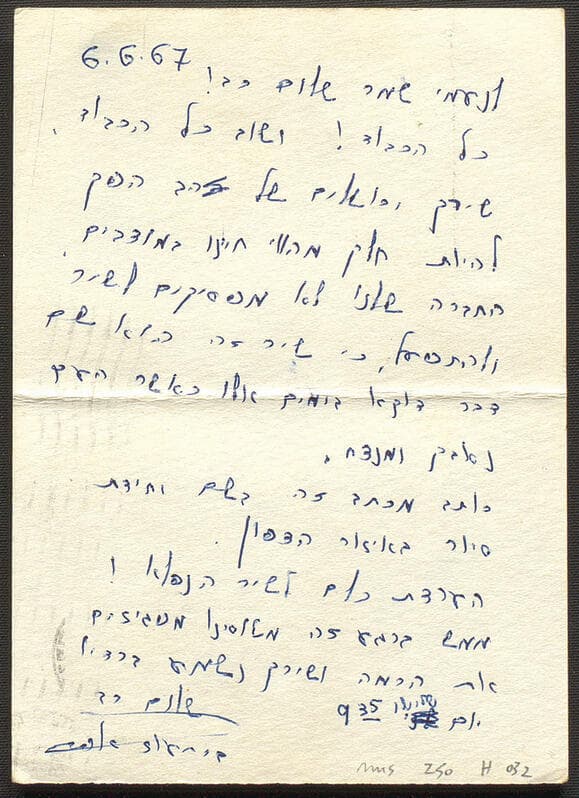 6.6.67
לנעמי שמר שלום רב!
כל הכבוד! ושוב כל הכבוד,
שירך ירושלים של זהב הפך
להיות חלק מהווי חיינו במוצבים.
החברה שלנו לא מפסיקים לשיר
ולהתפעל, כי שיר זה הוא שם
דבר דוקא בימים אלו כאשר העם
נאבק ומנצח.
כותב מכתב זה בשם יחידת
סיור באיזור הצפון.
הערצת כולם לשיר הנפלא!
ממש ברגע זה מטוסינו מפגיזים
את הרמה ושירך נשמע ברדיו
יום שלישי 935
שלום רב
mus 250 H 032